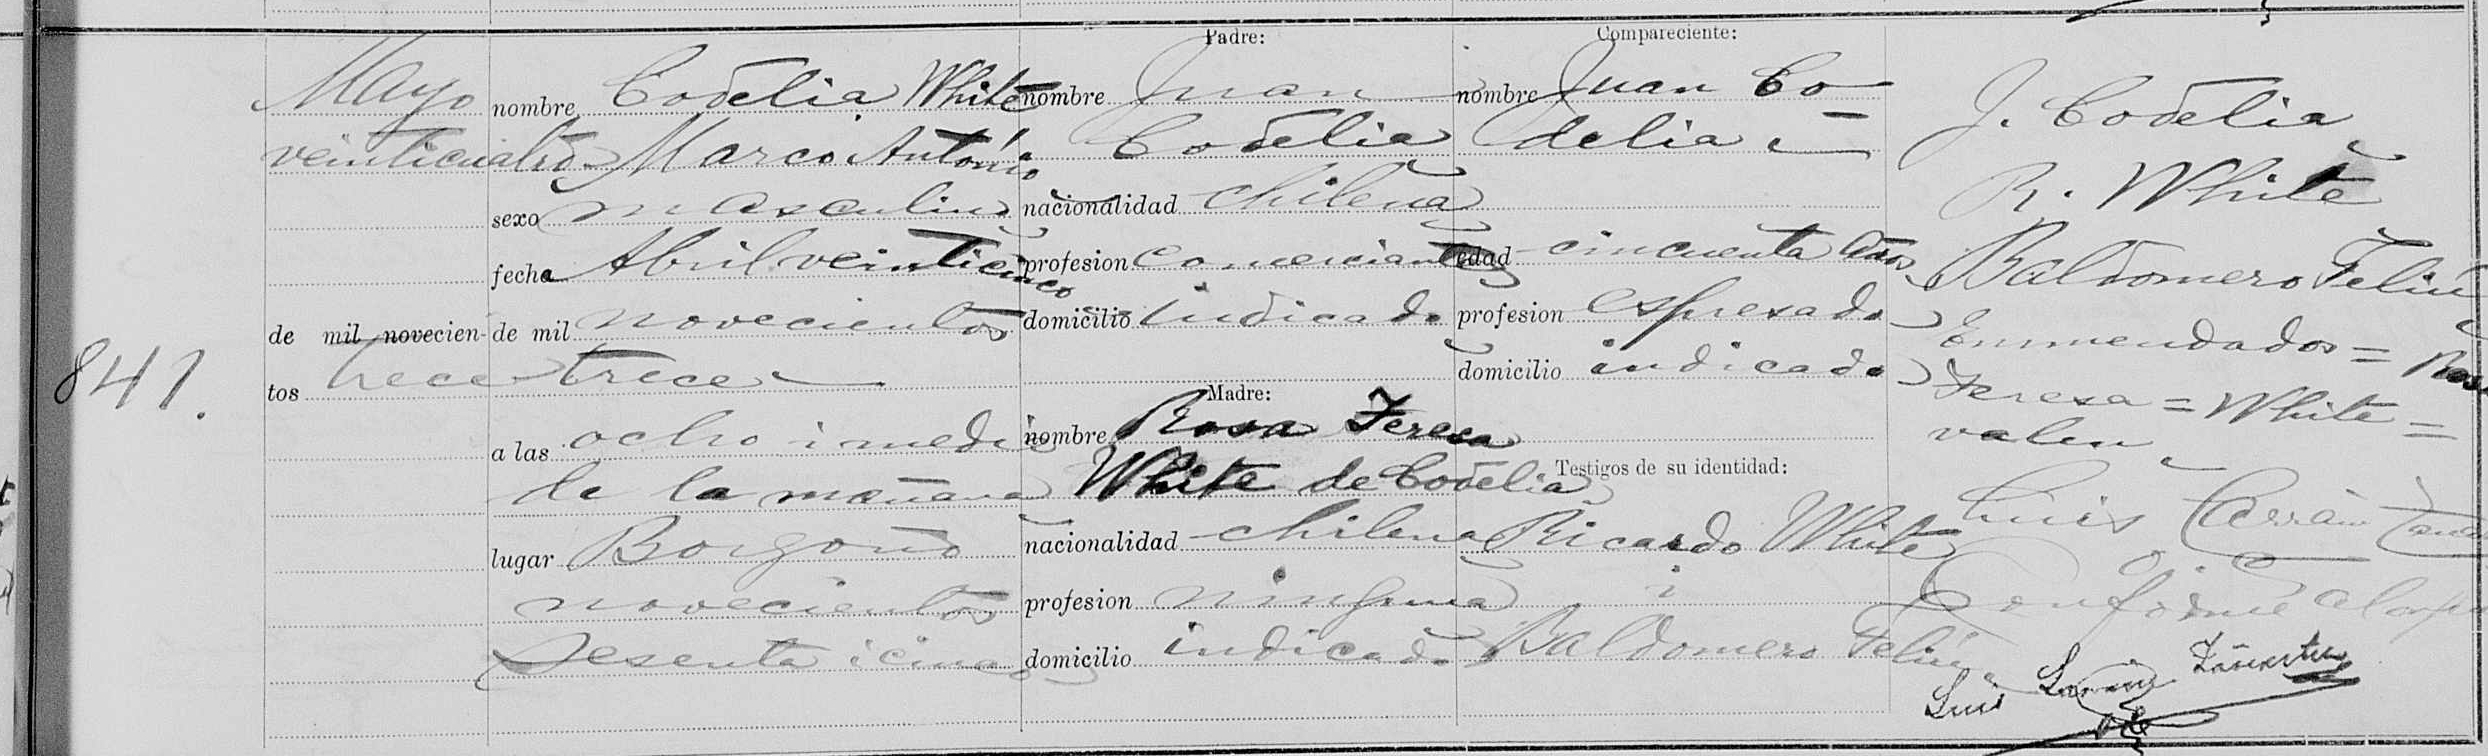 841.
Mayo
veinticuatro
de mil novecien-
tos trece
nombre Codelia White
Marco Antonio
sexo masculino
fecha Abril veinticinco
de mil novecientos
trece
a las ocho i media
de la mañana
lugar Borgoño
novecientos
sesenta i cinco
Padre:
nombre Juan
Codelia
nacionalidad chilena
profesion comerciante
domicilio indicado
Madre:
nombre Rosa Teresa
White de Codelia
nacionalidad chilena
profesion ninguna
domicilio indicado
Compareciente:
nombre Juan Co
delia
edad cincuenta años
profesion espresada
domicilio indicado
Testigos de su identidad:
Ricardo White
i
Baldomero Feliú
J. Codelia
R. White
Baldomero Feliú
Enmendados = Rosa
Teresa = White =
valen
Luis
Conforme
Luis